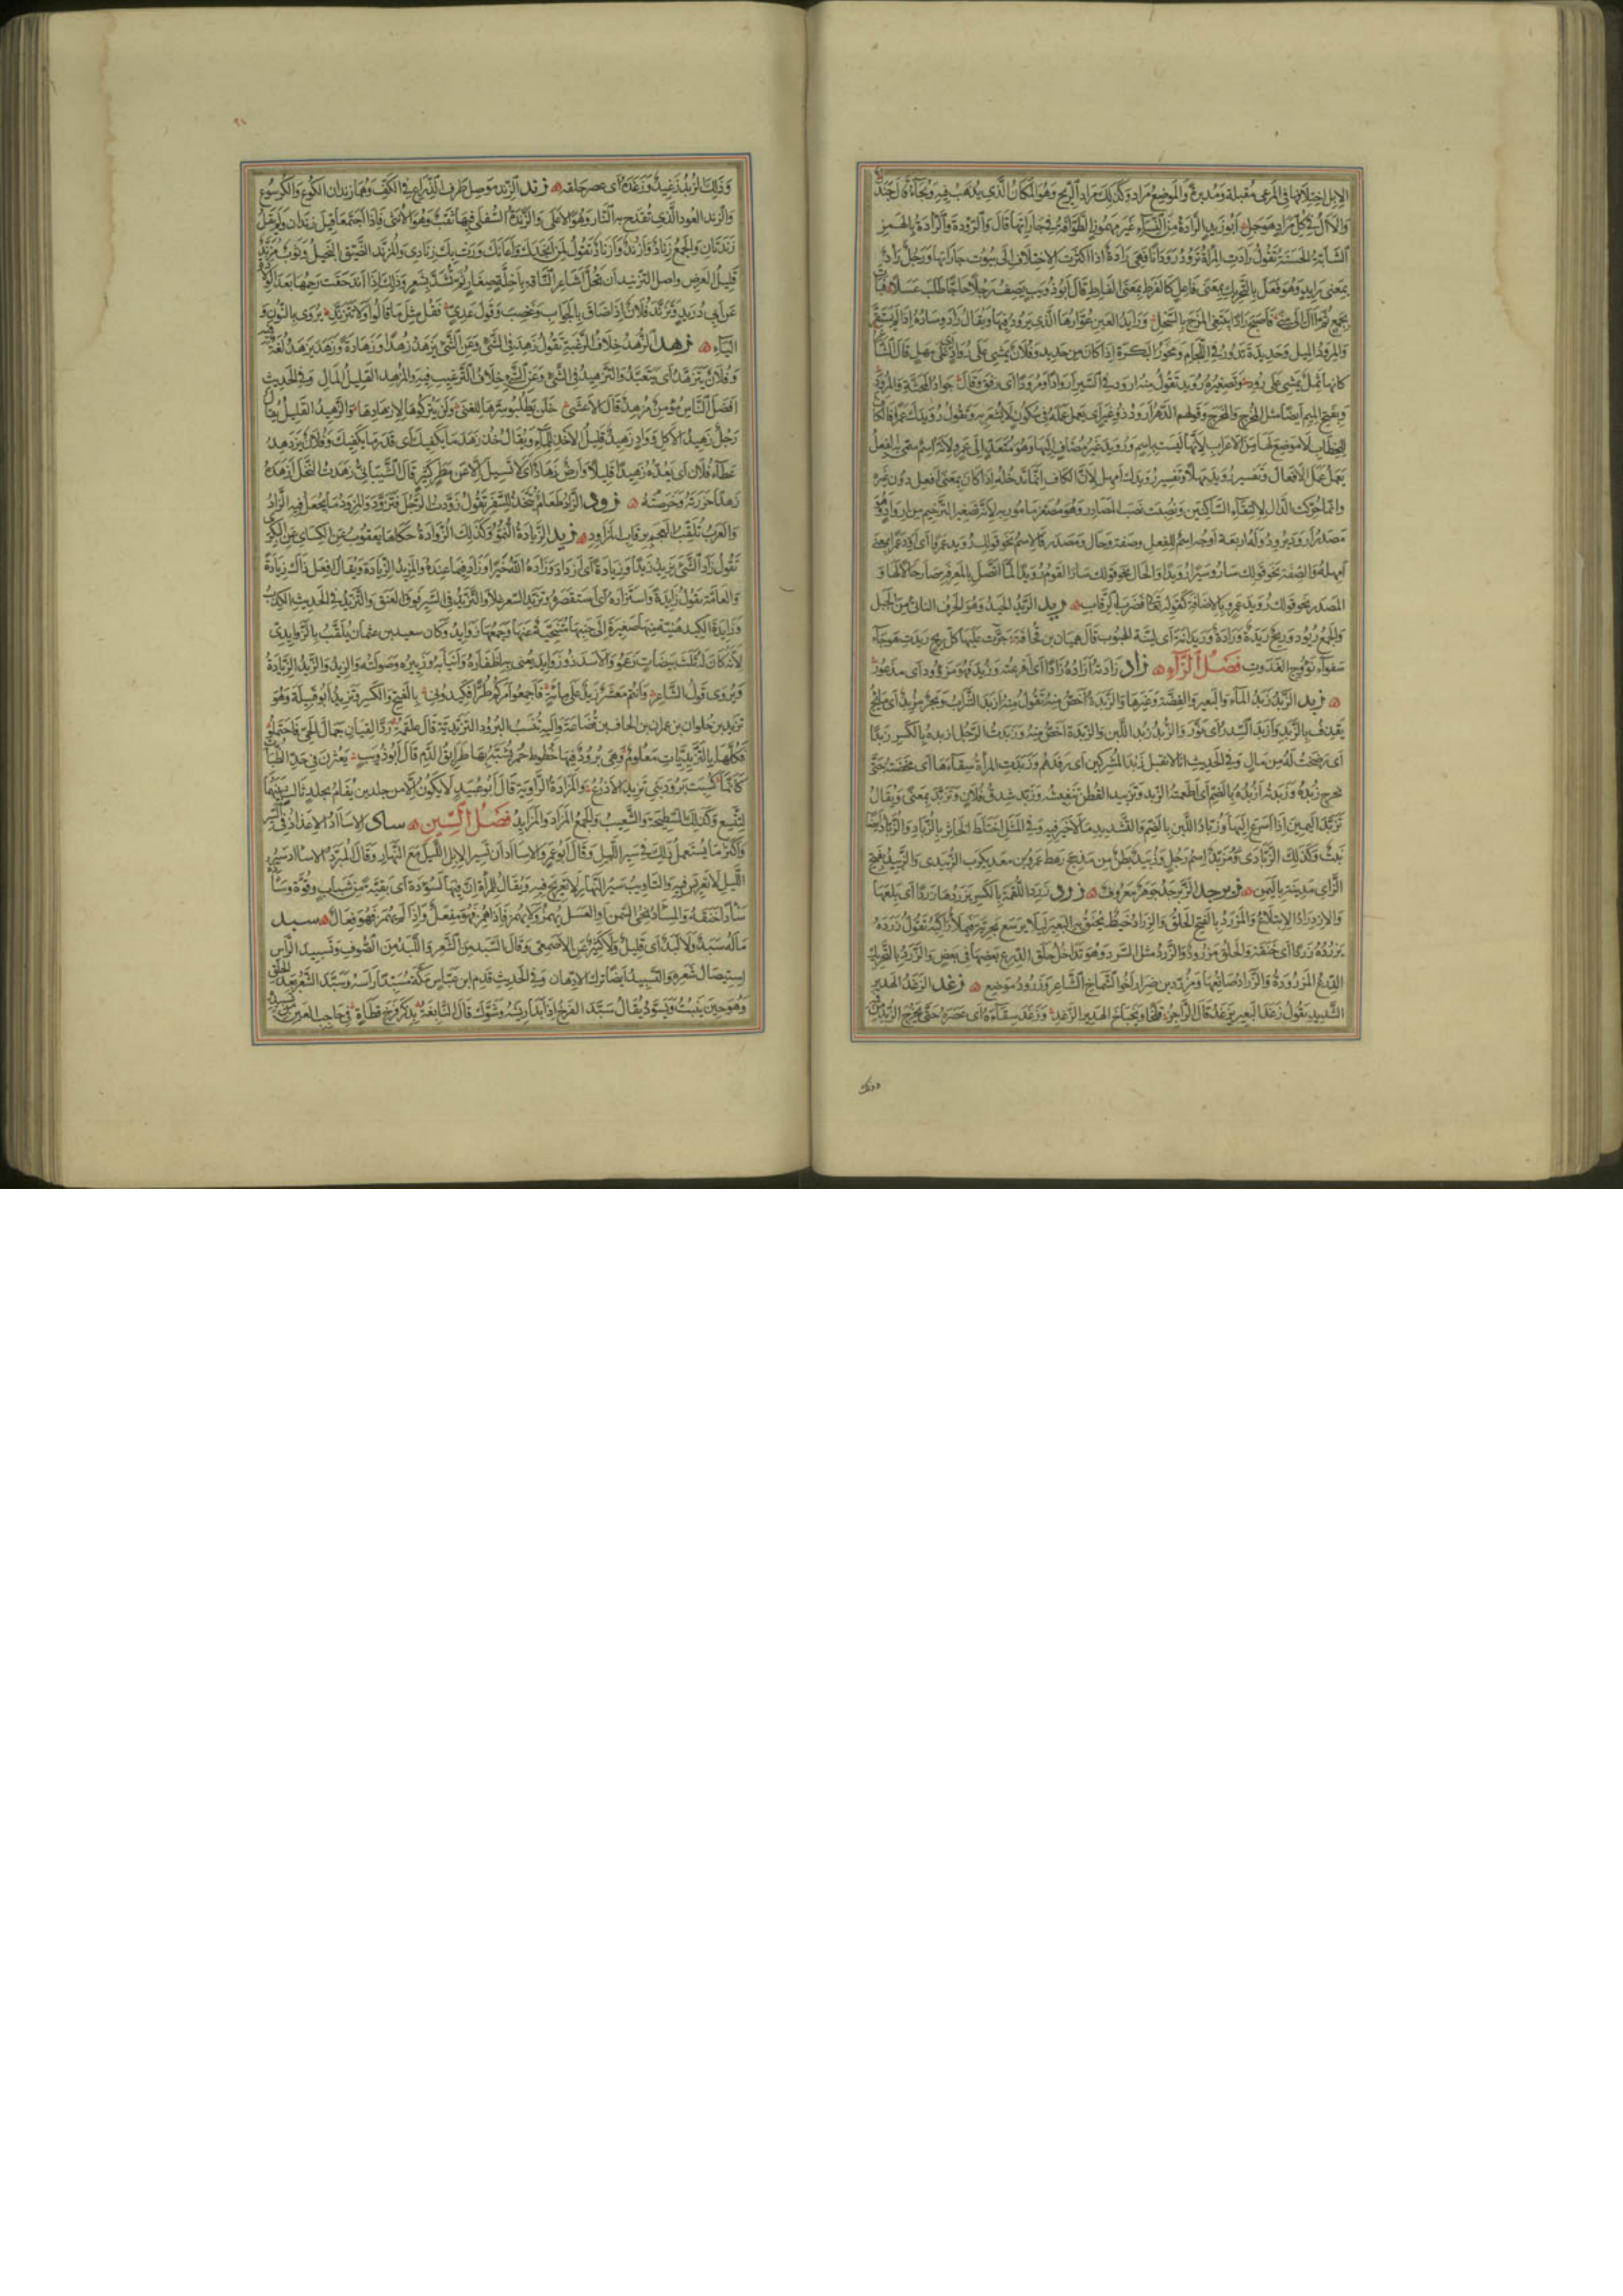 الإبل اختلافها في المرعى مقبلة ومدبرة والموضع مراد وكذلك مراد الريح وهو المكان الذي يذهب فيه ويجاء قال جندل
والآل في كل مراد هوجل أبو زيد الرادة من النساء غير مهموز الطوافة في جاراتها قال والرؤدة والرأدة بالهمز
الشابة الحسنة تقول رادت المرأة ترود رودانا فهي رادة إذا أكثرت الاختلاف إلى بيوت جاراتها ورجل راد
بمعنى رايد وهو فعل بالتحريك بمعنى فاعل كالفرط بمعنى الفارط قال أبو ذؤيب يصف رجلا حاجا طلب عسلا فبات
بجمع ثم آب إلى منى فأصبح رادا يبتغي المزج بالسحل ورايد العين عوارها الذي يرود فيها ويقال راد وساده إذا لم يستقر
والمرود الميل وحديدة تدور في اللجام ومحور البكرة إذا كان من حديد وفلان يمشي على رود أي على مهل قال الشاعر
كأنها ثمل يمشي على رود وتصغيره رويد تقول منه أرود في السير إروادا ومرودا أي رفق وقال جواد المحثة والمرود
وبفتح الميم أيضا مثل المخرج والمخرج وقولهم الدهر أرود ذو غير أي يعمل عمله في سكون لا يشعر به وتقول رويدك عمرا فالكاف
للخطاب لا موضع لها من الإعراب لأنها ليست باسم ورويد غير مضاف إليها وهو متعد إلى عمرو لأنه اسم سمي به الفعل
يعمل عمل الأفعال وتفسير رويد مهلا وتفسير رويدك أمهل لأن الكاف إنما تدخله إذا كان بمعنى أفعل دون غيره
وإنما حركت الدال لالتقاء الساكنين ونصبت نصب المصادر وهو مصغر مأمور به لأنه تصغير الترخيم من إرواد وهو
مصدر أرود يرود وله أربعة أوجه اسم للفعل وصفة وحال ومصدر فالاسم نحو قولك رويد عمرا أي أرود عمرا بمعنى
أمهله والصفة نحو قولك ساروا سيرا رويدا والحال نحو قولك سار القوم رويدا لما اتصل بالمعرفة صار حالا لها و
المصدر نحو قولك رويد عمرو بالإضافة كقوله تعالى فضرب الرقاب ريد الريد الحيد وهو الحرف الناتئ من الجبل
والجمع ريود وريح ريدة ورادة وريدانة أي لينة الهبوب قال هميان بن قحافة جرت عليها كل ريح ريدت هوجاء
سفواء نؤوج الغدوت فصل الزاء زأد زأدته أزأده زأدا أي أفزعته وزئد فهو مزؤود أي مذعور
زبد الزبد زبد الماء والبعير والفضة وغيرها والزبدة أخص منه تقول منه أزبد الشراب وبحر مزبد أي مايج
يقذف بالزبد وأزبد السدر أي نور والزبد زبد اللبن والزبدة أخص منه وزبدت الرجل أزبده بالكسر زبدا
أي رضخت له من مال وفي الحديث إنا لا نقبل زبد المشركين أي رفدهم وزبدت المرأة سقاءها أي مخضته حتى
يخرج زبده وزبدته أزبده بالضم أي أطعمته الزبد وتزبيد القطن تنفيشه وزبد شدق فلان وتزبد بمعنى ويقال
تزبد اليمين إذا أسرع إليها وزباد اللبن بالضم والتشديد ما لا خير فيه وفي المثل اختلط الخاثر بالزباد والزباد أيضا
نبت وكذلك الزبادى ومزبد اسم رجل وزبيد بطن من مذحج رهط عمرو بن معديكرب الزبيدي والزبيد بفتح
الزاي مدينة باليمن زبرجد الزبرجد جوهر معروف زرد زرد اللقمة بالكسر يزردها زردا أي بلعها
والازدراد الابتلاع والمزرد بالفتح الحلق والزراد خيط يخنق به البعير لئلا يدسع بجرته فيملأ راكبه تقول زرده
يزرده زردا أي خنقه والحلق مزرود والزرد مثل السرد وهو تداخل حلق الدرع بعضها في بعض والزرد بالتحريك
الدرع المزرودة والزراد صانعها ومزرد بن ضرار أخو الشماخ الشاعر وزرود موضع زغد الزغد الهدير
الشديد تقول زغد البعير يزغد قال الراجز قلخا وبخباخ الهدير الزغد وزغد سقاءه أي عصره حتى يخرج الزبد من فمه
وذلك
وذلك الزبد زغيد وزغده أي عصر حلقه زند الزند موصل طرف الذراع في الكف وهما زندان الكوع والكرسوع
والزند العود الذي تقدح به النار وهو الأعلى والزندة السفلى فيها ثقب وهو الأنثى فإذا اجتمعا قيل زندان ولم يقل
زندتان والجمع زناد وأزند وأزناد تقول لمن أنجدك وأعانك ورت بك زنادي والمزند الضيق البخيل وثوب مزند
قليل العرض وأصل التزنيد أن تخل أشاعر الناقة بأخلة صغار ثم تشد بشعر وذلك إذا اندحقت رحمها بعد الولادة
عن ابن دريد وتزند فلان إذا ضاق بالجواب وغضب وقول عدي فقل مثل ما قالوا ولا تتزند يروى بالنون و
الياء زهد الزهد خلاف الرغبة تقول زهد في الشيء وعن الشيء يزهد زهدا وزهادة وزهد يزهد لغة فيه
وفلان يتزهد أي يتعبد والتزهيد في الشيء وعن الشيء خلاف الترغيب فيه والمزهد القليل المال وفي الحديث
أفضل الناس مؤمن مزهد قال الأعشى فلن يطلبوا سرها للغنى ولن يتركوها لإزهادها والزهيد القليل يقال
رجل زهيد الأكل وواد زهيد قليل الأخذ للماء ويقال خذ زهد ما يكفيك أي قدر ما يكفيك وفلان يزدهد
عطاء فلان أي يعده زهيدا قليلا وأرض زهاد أي لا تسيل إلا عن مطر كثير قال الشيباني زهدت النخل أزهده
زهدا حزرته وخرصته زود الزاد طعام يتخذ للسفر تقول زودت الرجل فتزود والمزود ما يجعل فيه الزاد
والعرب تلقب العجم برقاب المزاود زيد الزيادة النمو وكذلك الزوادة حكاها يعقوب عن الكسائي عن البكري
تقول زاد الشيء يزيد زيدا وزيادة أي ازداد وزاده الله خيرا وزاد فيما عنده والمزيد الزيادة ويقال افعل ذاك زيادة
والعامة تقول زايدة واستزاده أي استقصره وتزيد السعر غلا والتزيد في السير فوق العنق والتزيد في الحديث الكذب
وزايدة الكبد هنية منها صغيرة إلى جنبها متنحية عنها وجمعها زوايد وكان سعيد بن عثمان يلقب بالزوايدي
لأنه كان له ثلث بيضات زعموا والأسد ذو زوايد يعني به أظفاره وأنيابه وزئيره وصولته والزيد والزيد الزيادة
ويروى قول الشاعر وأنتم معشر زيد على مائة فأجمعوا أمركم طرا فكيدوني بالفتح والكسر وتزيد أبو قبيلة وهو
تزيد بن حلوان بن عمران بن الحاف بن قضاعة وإليه تنسب البرود التزيدية قال علقمة رد القيان جمال الحي فاحتملوا
فكلها بالتزيديات معكوم وهي برود فيها خطوط حمر تشبه بها طرايق الدم قال أبو ذؤيب يعثرن في حد الظبات
كأنما كسيت برود بني تزيد الأذرع والمزادة الراوية قال أبو عبيد لا يكون إلا من جلدين يفأم بجلد ثالث بينهما
لتتسع وكذلك السطيحة والشعيب والجمع المزاد والمزايد فصل السين سأد الإسآد الإغذاذ في السير
وأكثر ما يستعمل ذلك في سير الليل وقال أبو عمرو الإسآد أن تسير الإبل الليل مع النهار وقال المبرد الإسآد سير
الليل لا تعريس فيه والتأويب سير النهار لا تعريج فيه ويقال للمرأة إن فيها لسؤدة أي بقية من شباب وقوة وسأده
سأدا خنقه والمسأد نحي السمن أو العسل يهمز ولا يهمز فإذا همز فهو مفعل وإذا لم يهمز فهو فعال سبد
ما له سبد ولا لبد أي قليل ولا كثير عن الأصمعي وقال السبد من الشعر واللبد من الصوف وتسبيد الرأس
استيصال شعره والتسبيد أيضا ترك الادهان وفي الحديث قدم ابن عباس مكة مسبدا رأسه وسبد الشعر بعد الحلق
وهو حين ينبت ويسود يقال سبد الفرخ إذا بدا ريشه وشوك قال النابغة يذكر فرخ قطاة في حاجب العين من تسبيده